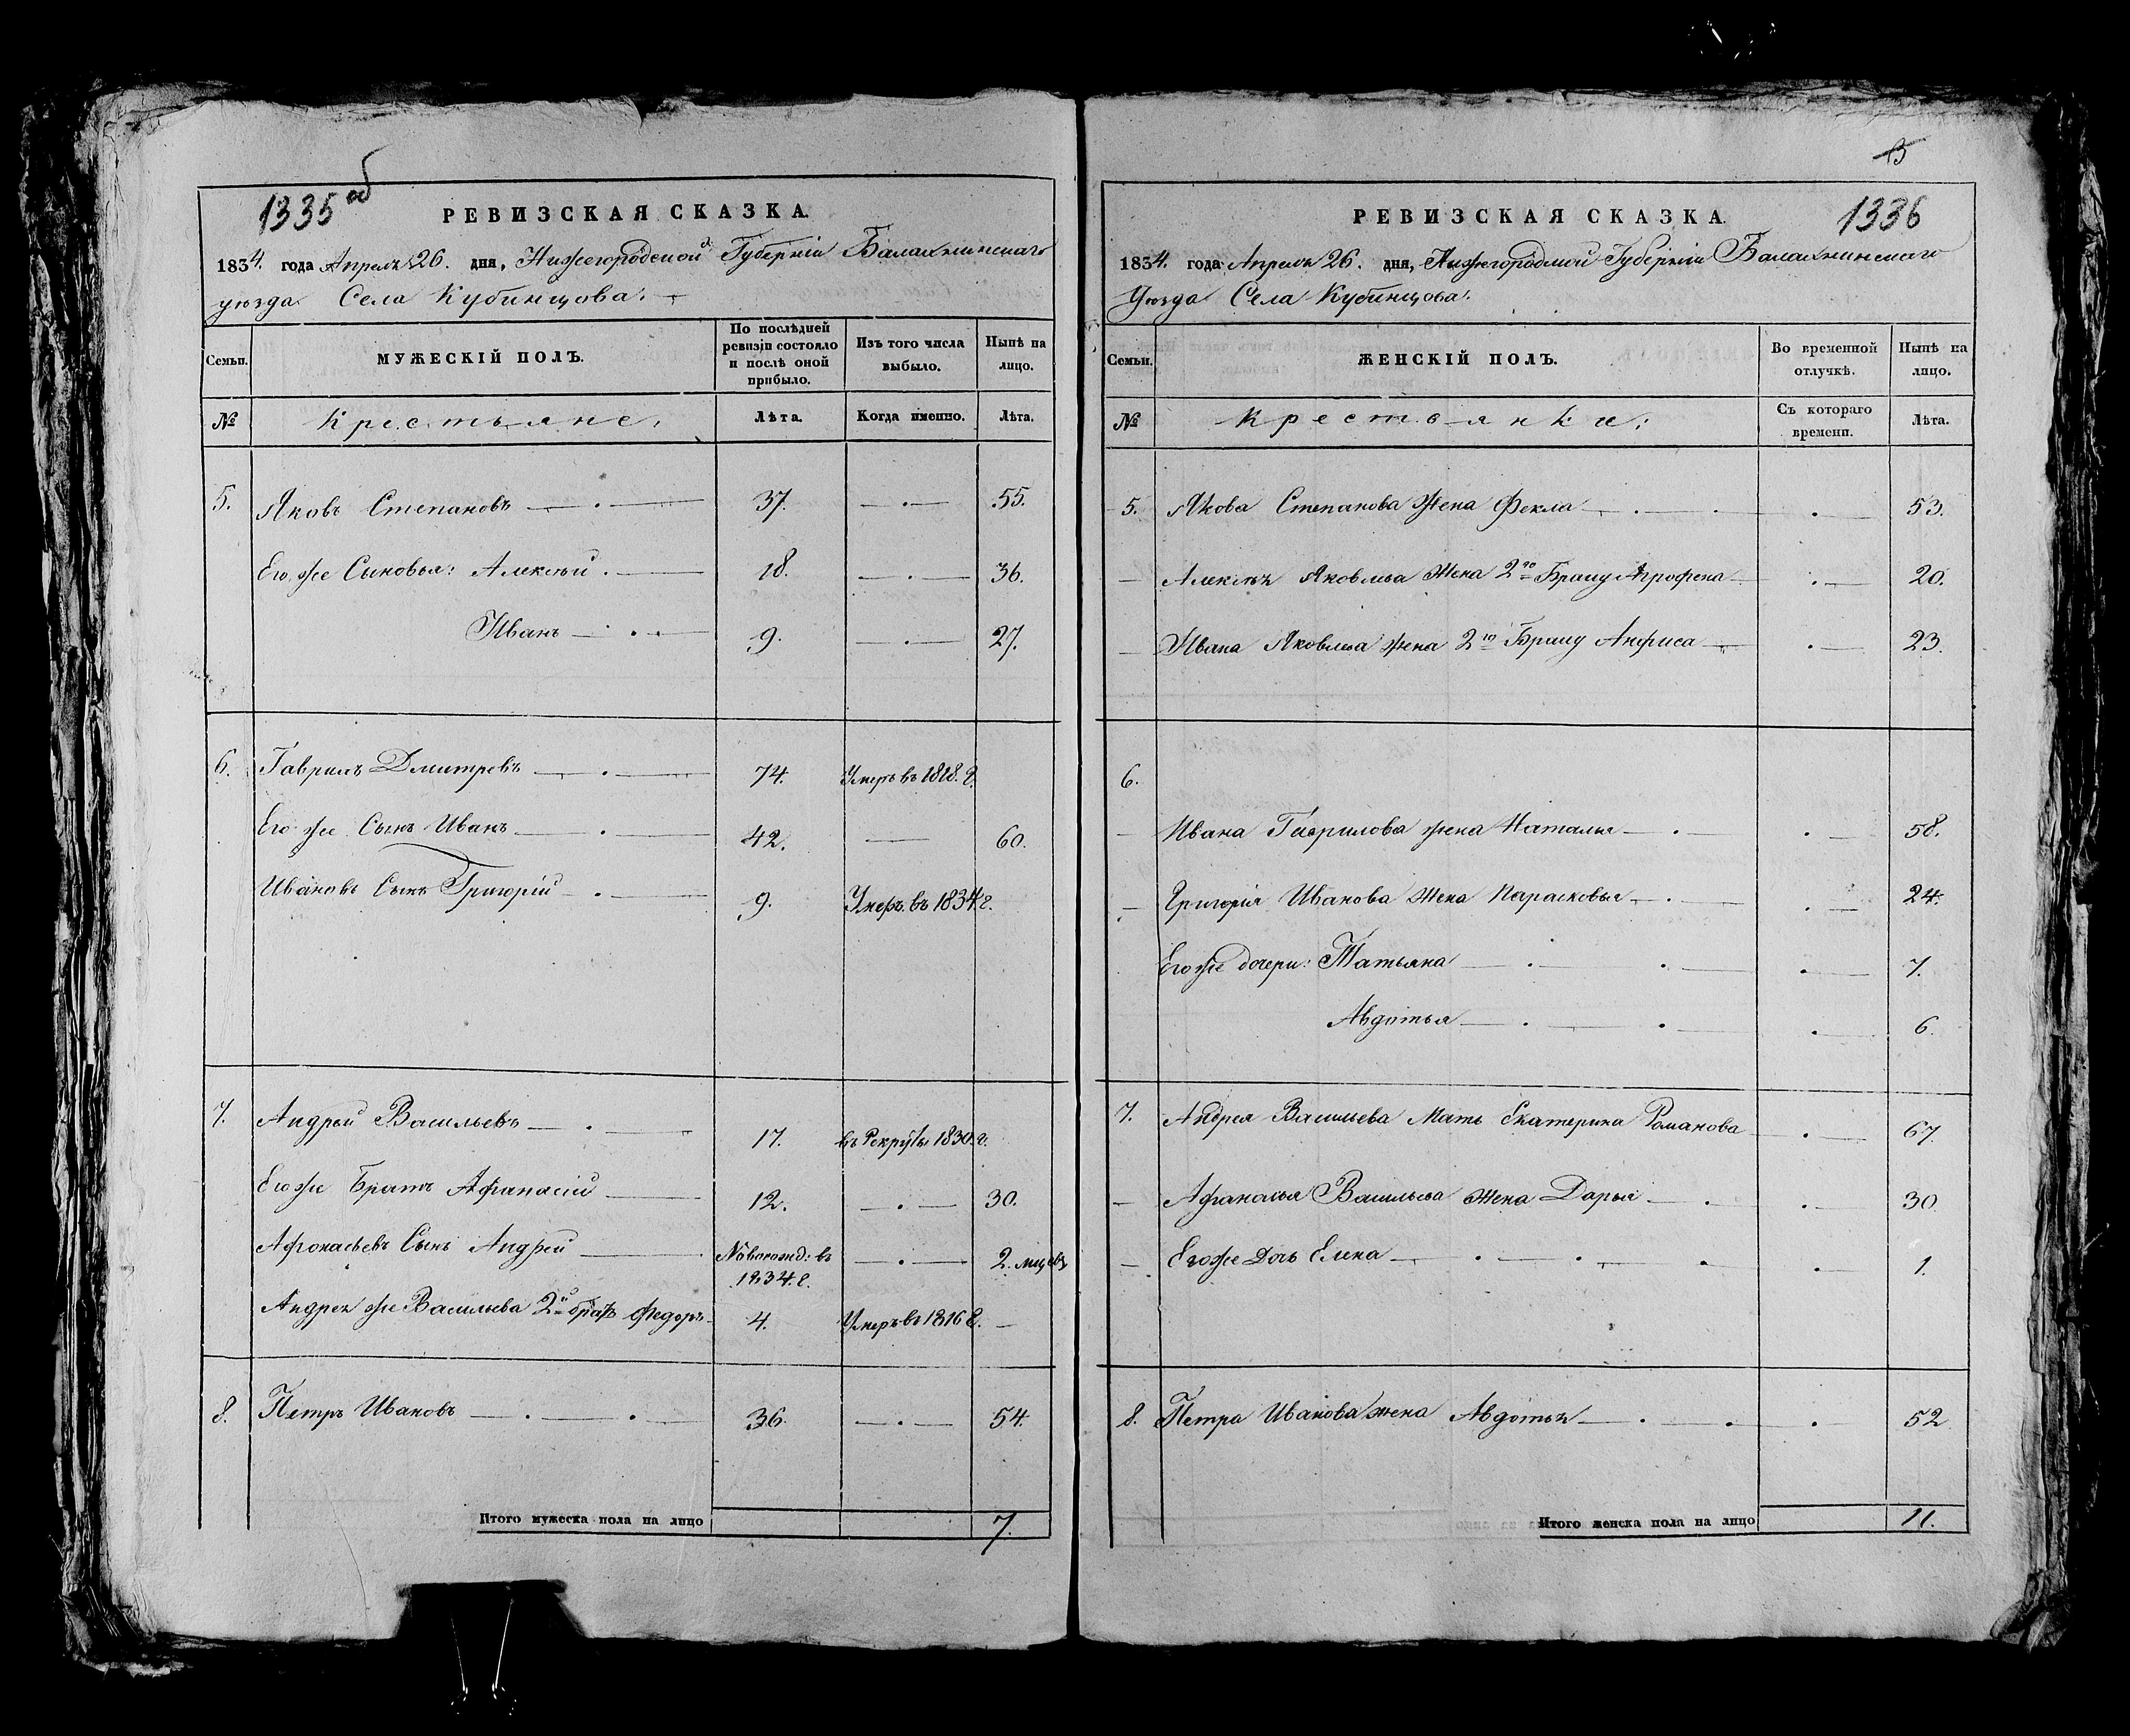 1335 об
РЕВИЗСКАЯ СКАЗКА.
1834. года Апреля 26. дня, Нижегородской Губернiи Балахнинскаго
уезда Села Кубинцова.
Семьи.
МУЖЕСКIЙ ПОЛЪ.
По послѣдней ревизiи состояло и послѣ оной прибыло.
Изъ того числа выбыло.
Нынѣ на лицо.
№
Крестьяне.
Лѣта.
Когда именно.
Лѣта.
5. Яковъ Степановъ 37. 55.
Его же Сыновья: Алексѣй 18. 36.
Иванъ 9. 27.
6. Гаврилъ Дмитревъ 74. Умеръ въ 1818. г.
Его же Сынъ Иванъ 42. 60.
Ивановъ Сынъ Григорiй 9. Умеръ въ 1834 г.
7. Андрей Васильевъ 17. въ Рекруты 1830. г.
Его же Братъ Афанасiй 12. 30.
Афонасьевъ Сынъ Андрей Новорожд: въ 1834. г. 2. месяц
Андрея же Васильева 2й братъ Федоръ 4. Умеръ въ 1816 г.
8. Петръ Ивановъ 36. 54.
Итого мужеска пола на лицо 7.
1336
РЕВИЗСКАЯ СКАЗКА
1834. года Апреля 26. дня, Нижегородской Губернiи Балахнинскаго
Уезда Села Кубинцова.
Семьи.
ЖЕНСКIЙ ПОЛЪ.
Во временной отлучкѣ.
Нынѣ на лицо.
№
Крестьянки:
Съ котораго времени.
Лѣта.
5. Якова Степанова Жена Фекла 53.
Алексѣя Яковлева Жена 2го Браку Агрофена 20.
Ивана Яковлева жена 2го Браку Анфиса 23.
6.
Ивана Гаврилова жена Наталья 58.
Григорiя Иванова Жена Парасковья 24.
Его же дочери: Татьяна 7.
Авдотья 6.
7. Андрея Васильева Мать Екатерина Романова 67.
Афанасья Васильева Жена Дарья 30
Его же Дочь Елена 1.
8. Петра Иванова жена Авдотья 52
Итого женска пола на лицо 11.